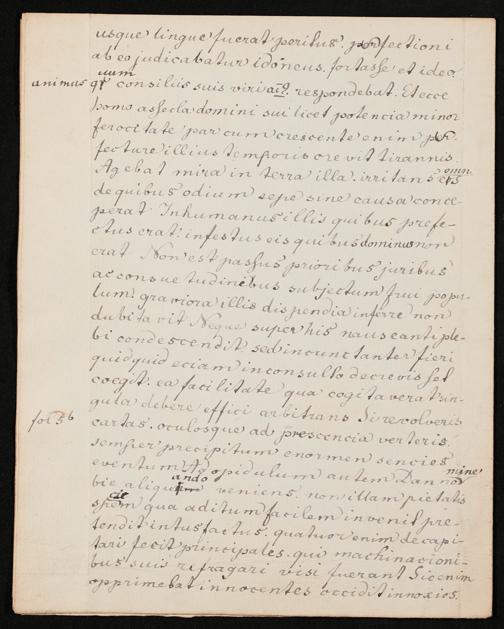 usque lingue fuerat peritus. perfectioni
ab eo judicabatur idoneus. fortasse et ideo.
uum
animus qr consiliis suis viri aiō. respondebat. Et ecce
homo assecla domini sui licet potencia minor
ferocitate par cum crescente enim
fecture illius temporis crevit tirannis.
omn
Agebat mira in terra illa. irritans
de quibus odium sepe sine causa conce-
perat Inhumanus illis quibus prefe-
ctus erat. infestus eis quibus dominus non
erat Non est passus prioribus juribus
ac consuetudinibus subjectum frui popu-
lum. graviora illis dispendia inferre non
dubitavit Neque super his nauseanti ple-
bi condescendit sed incunctanter fieri
quidquid eciam inconsulto decrevisset
coegit. ea facilitate qua cogitaverat sin-
gula debere effici arbitrans Si revolveris
fol 56
cartas. oculosque ad prescencia verteris.
semper precipitum enormem sencies
eventum Ad opidulum autem Dan no mine
ando
bie aliqu veniens. non illam pietatis
cie
spem qua aditum facilem invenit pre-
tendit intus factus. quatuor enim decapi-
tari fecit principales. qui machinacioni-
bus suis refragari visi fuerant Sic enim
opprimebat innocentes occidit innoxios.